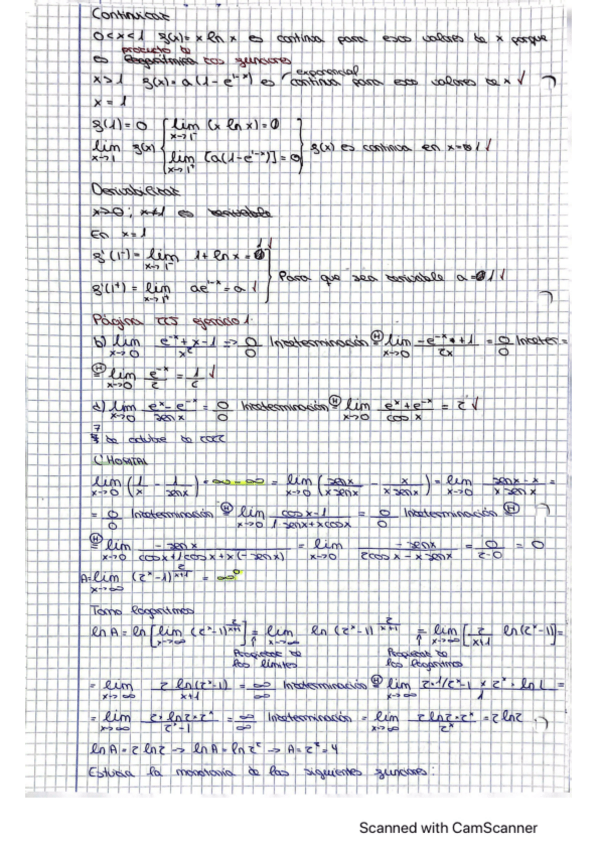 Continuidad
0<x<1 g(x)= x ln x es continua para esos valores de x porque
producto de
es logarítmica dos funciones
exponencial
x>1 g(x)= a(1-e^(1-x)) es continua para esos valores de x ✓
x=1
g(1)=0 { lim x→1⁻ (x ln x)=0
lim x→1 g(x) { lim x→1⁺ [a(1-e^(1-x))]=0 } g(x) es continua en x=1 ✓
Derivabilidad
x>0; x≠1 es derivable
En x=1
g'(1⁻)= lim x→1⁻ 1+ln x = 1
g'(1⁺)= lim x→1⁺ ae^(1-x) = a } Para que sea derivable a=1 ✓
Página 225 ejercicio 1.
b) lim x→0 (e^(-x)+x-1)/x² => 0/0 Indeterminación (H) lim x→0 (-e^(-x)+1)/2x = 0/0 Indeter=
(H)= lim x→0 e^(-x)/2 = 1/2 ✓
d) lim x→0 (e^x-e^(-x))/sen x = 0/0 Indeterminación (H)= lim x→0 (e^x+e^(-x))/cos x = 2 ✓
7 de octubre de 2022
L'HOPITAL
lim x→0 (1/x - 1/senx) = ∞-∞ = lim x→0 (senx/x senx - x/x senx) = lim x→0 (senx-x)/(x senx) =
= 0/0 Indeterminación (H) lim x→0 (cosx-1)/(1·senx+xcosx) = 0/0 Indeterminación (H)
(H)= lim x→0 -senx/(cosx+1·cosx+x·(-senx)) = lim x→0 -senx/(2cosx-x senx) = 0/(2-0) = 0
A= lim x→∞ (2^x-1)^(2/(x+1)) = ∞⁰
Tomo logaritmos
ln A = ln [lim x→∞ (2^x-1)^(2/(x+1))] = lim x→∞ ln (2^x-1)^(2/(x+1)) = lim x→∞ [2/(x+1) ln(2^x-1)] =
Propiedad de los límites Propiedad de los logaritmos
= lim x→∞ 2 ln(2^x-1)/(x+1) = ∞/∞ Indeterminación (H) lim x→∞ (2·1/(2^x-1)·2^x·ln 2)/1 =
= lim x→∞ (2·ln2·2^x)/(2^x-1) = ∞/∞ Indeterminación = lim x→∞ (2ln2·2^x)/2^x = 2ln2
ln A = 2 ln2 → ln A = ln 2² → A = 2² = 4
Estudia la monotonía de las siguientes funciones:
Scanned with CamScanner